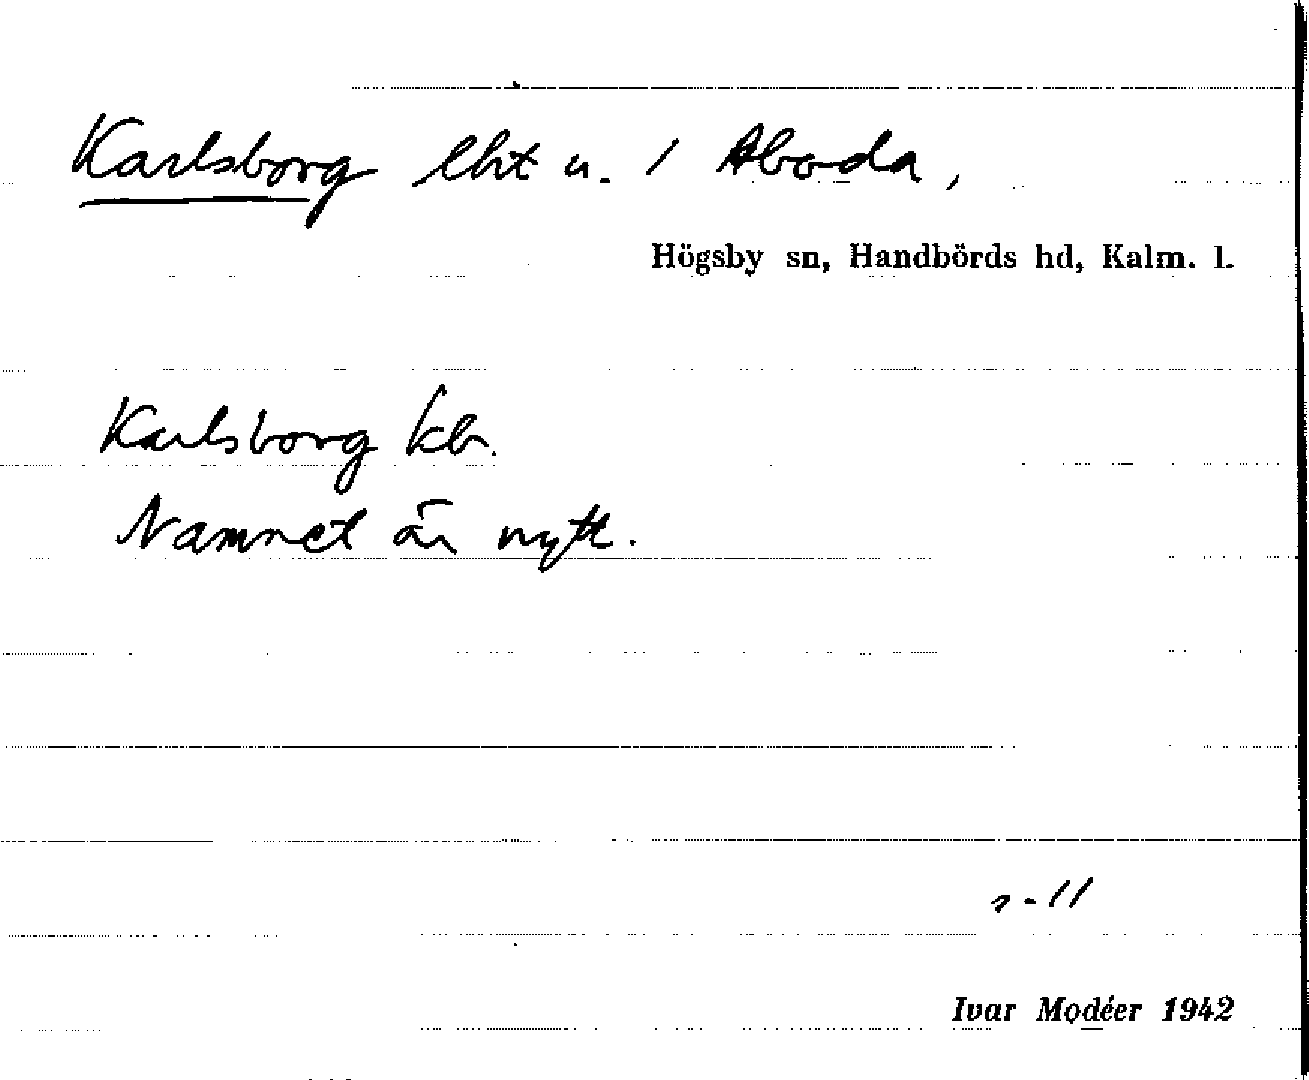 Karlsborg lht u. / Aboda,
Högsby sn, Handbörds hd, Kalm. l.
Karlsborg kb.
Namnet är nytt.
Ivar Modéer 1942